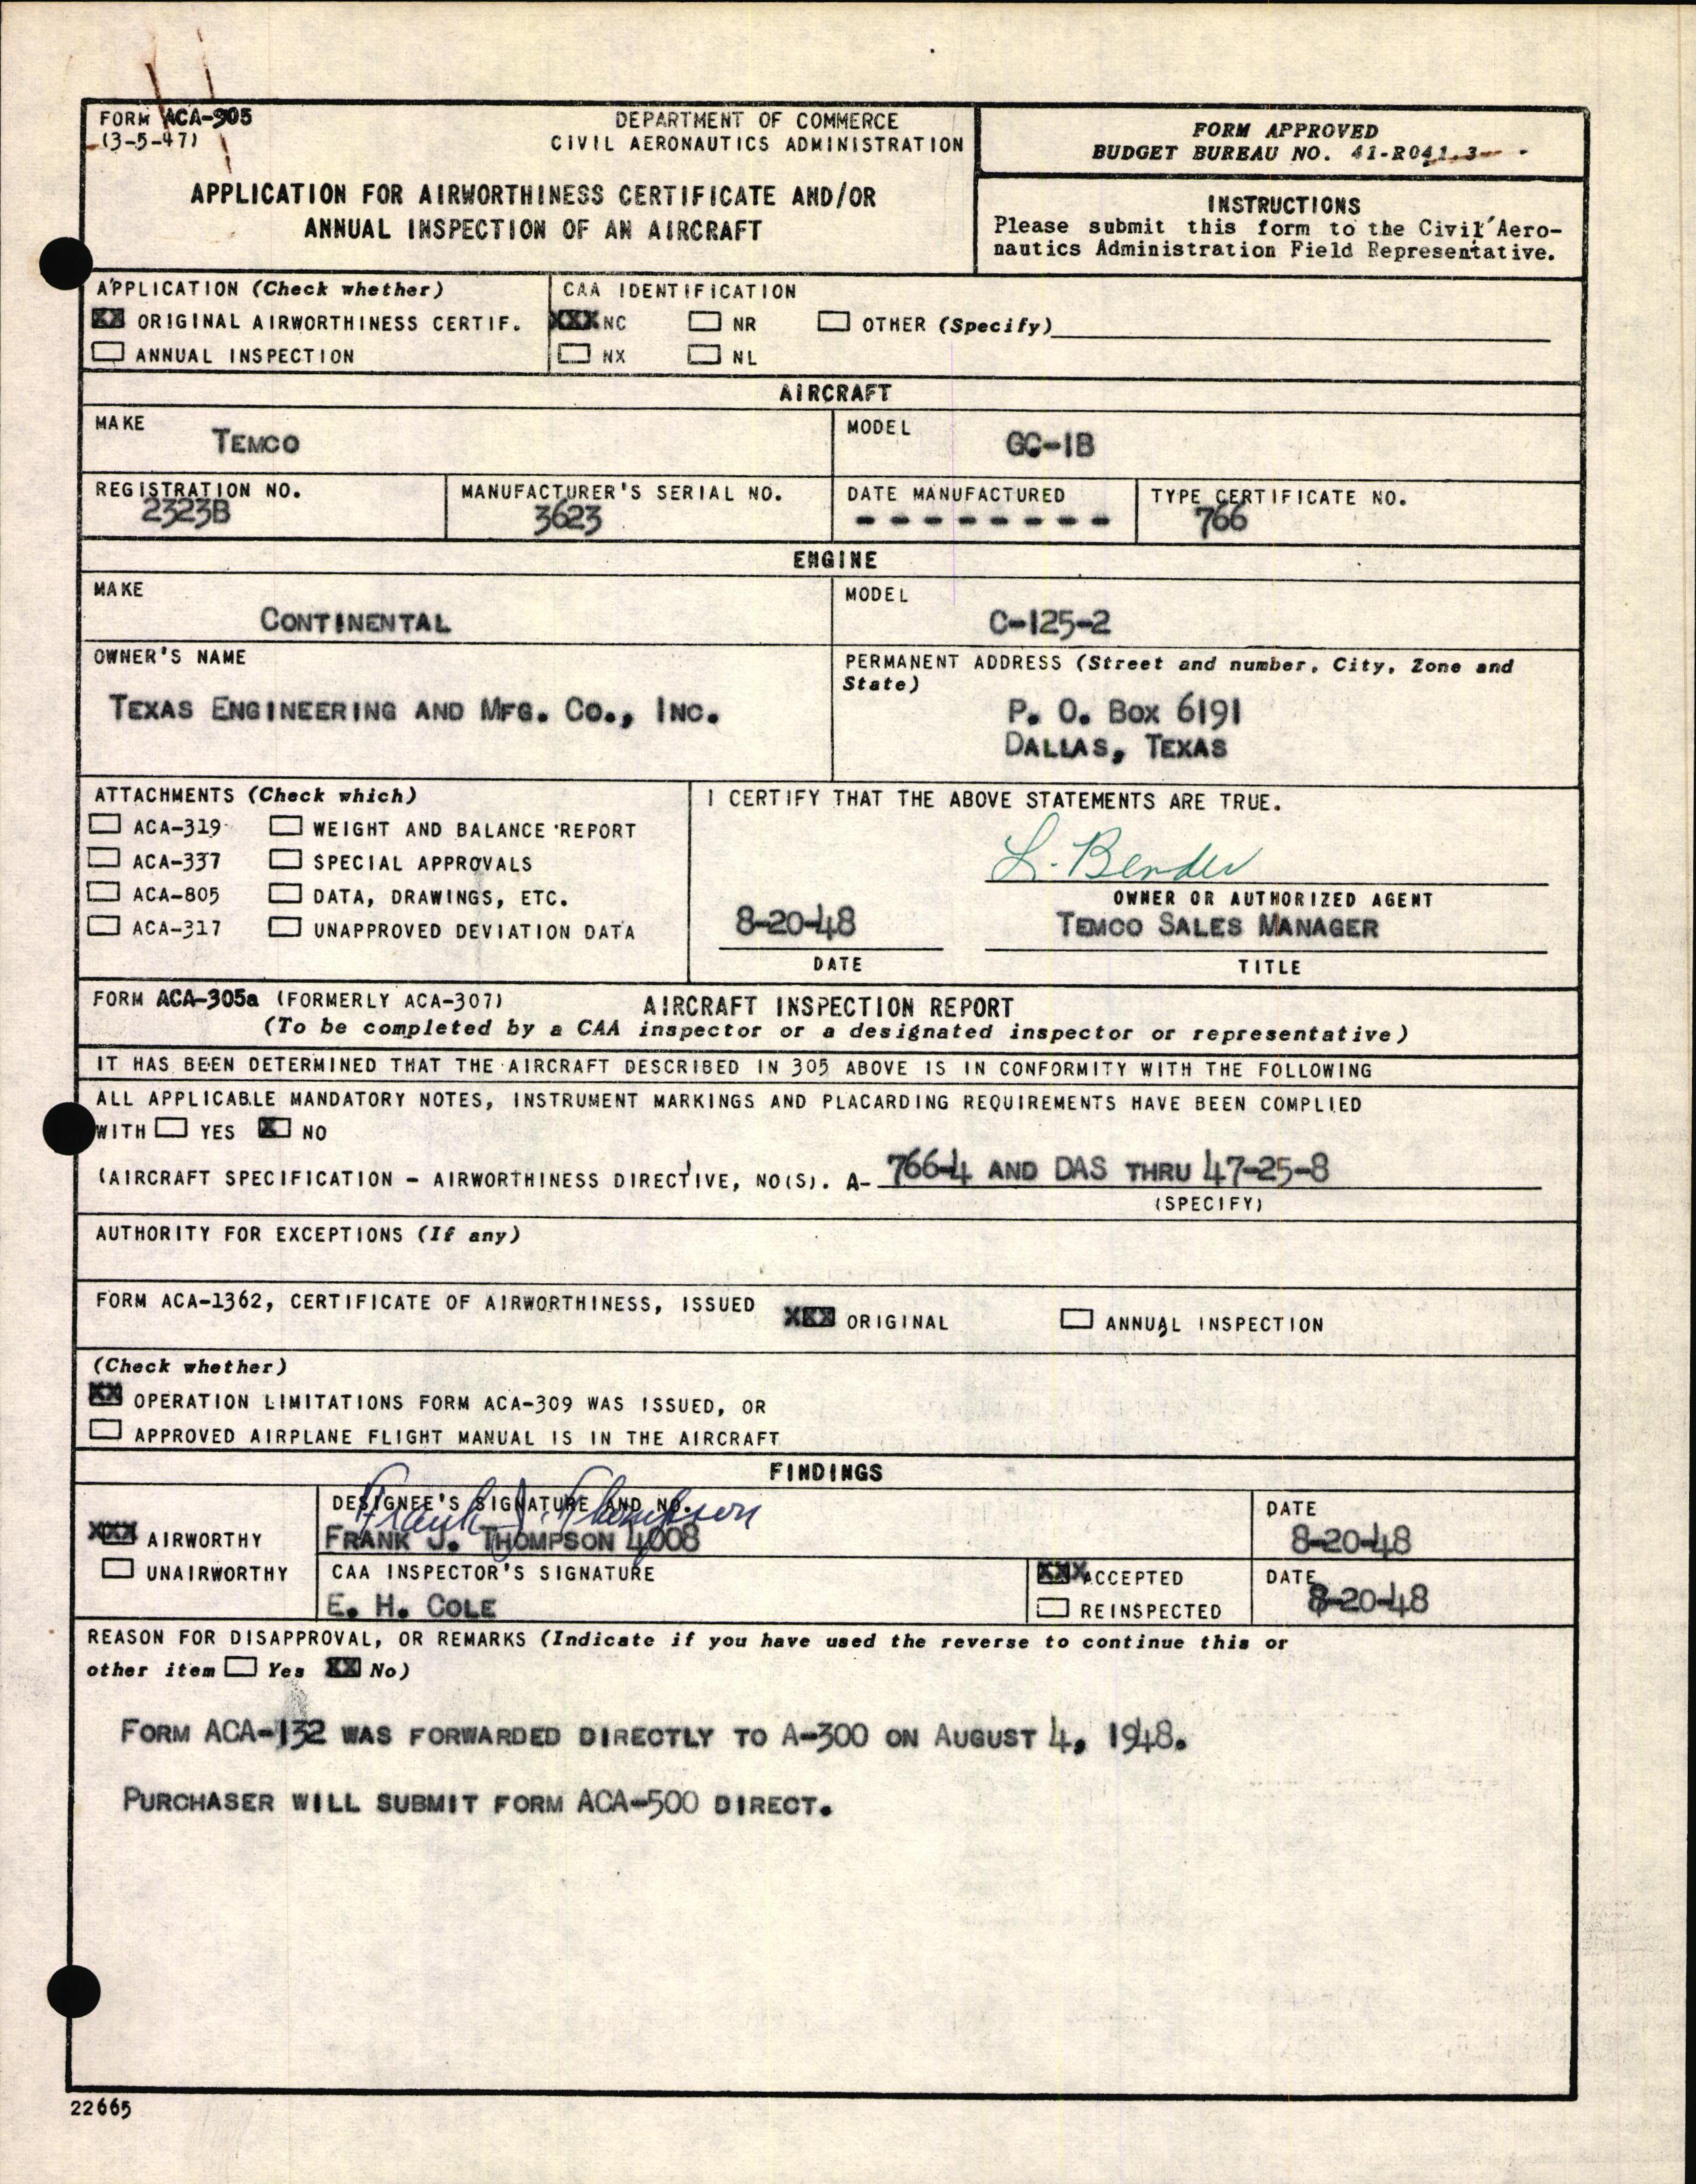 FORM ACA-305
(3-5-47)
DEPARTMENT OF COMMERCE
CIVIL AERONAUTICS ADMINISTRATION
APPLICATION FOR AIRWORTHINESS CERTIFICATE AND/OR
ANNUAL INSPECTION OF AN AIRCRAFT
FORM APPROVED
BUDGET BUREAU NO. 41-R041.3
INSTRUCTIONS
Please submit this form to the Civil Aero-
nautics Administration Field Representative.
APPLICATION (Check whether)
XX ORIGINAL AIRWORTHINESS CERTIF.
ANNUAL INSPECTION
CAA IDENTIFICATION
XXX NC NR OTHER (Specify)
NX NL
AIRCRAFT
MAKE
TEMCO
MODEL
GC-1B
REGISTRATION NO.
2323B
MANUFACTURER'S SERIAL NO.
3623
DATE MANUFACTURED
- - - - - - - -
TYPE CERTIFICATE NO.
766
ENGINE
MAKE
CONTINENTAL
MODEL
C-125-2
OWNER'S NAME
TEXAS ENGINEERING AND MFG. CO., INC.
PERMANENT ADDRESS (Street and number, City, Zone and
State)
P. O. BOX 6191
DALLAS, TEXAS
ATTACHMENTS (Check which)
ACA-319 WEIGHT AND BALANCE REPORT
ACA-337 SPECIAL APPROVALS
ACA-805 DATA, DRAWINGS, ETC.
ACA-317 UNAPPROVED DEVIATION DATA
I CERTIFY THAT THE ABOVE STATEMENTS ARE TRUE.
L. Bender
OWNER OR AUTHORIZED AGENT
8-20-48 TEMCO SALES MANAGER
DATE TITLE
FORM ACA-305a (FORMERLY ACA-307) AIRCRAFT INSPECTION REPORT
(To be completed by a CAA inspector or a designated inspector or representative)
IT HAS BEEN DETERMINED THAT THE AIRCRAFT DESCRIBED IN 305 ABOVE IS IN CONFORMITY WITH THE FOLLOWING
ALL APPLICABLE MANDATORY NOTES, INSTRUMENT MARKINGS AND PLACARDING REQUIREMENTS HAVE BEEN COMPLIED
WITH YES X NO
(AIRCRAFT SPECIFICATION - AIRWORTHINESS DIRECTIVE, NO(S). A- 766-4 AND DAS THRU 47-25-8
(SPECIFY)
AUTHORITY FOR EXCEPTIONS (If any)
FORM ACA-1362, CERTIFICATE OF AIRWORTHINESS, ISSUED XXX ORIGINAL ANNUAL INSPECTION
(Check whether)
XX OPERATION LIMITATIONS FORM ACA-309 WAS ISSUED, OR
APPROVED AIRPLANE FLIGHT MANUAL IS IN THE AIRCRAFT
FINDINGS
XXX AIRWORTHY
UNAIRWORTHY
DESIGNEE'S SIGNATURE AND NO.
Frank J. Thompson
FRANK J. THOMPSON 4008
DATE
8-20-48
CAA INSPECTOR'S SIGNATURE
E. H. COLE
XXX ACCEPTED
REINSPECTED
DATE
8-20-48
REASON FOR DISAPPROVAL, OR REMARKS (Indicate if you have used the reverse to continue this or
other item Yes XX No)
FORM ACA-132 WAS FORWARDED DIRECTLY TO A-300 ON AUGUST 4, 1948.
PURCHASER WILL SUBMIT FORM ACA-500 DIRECT.
22665